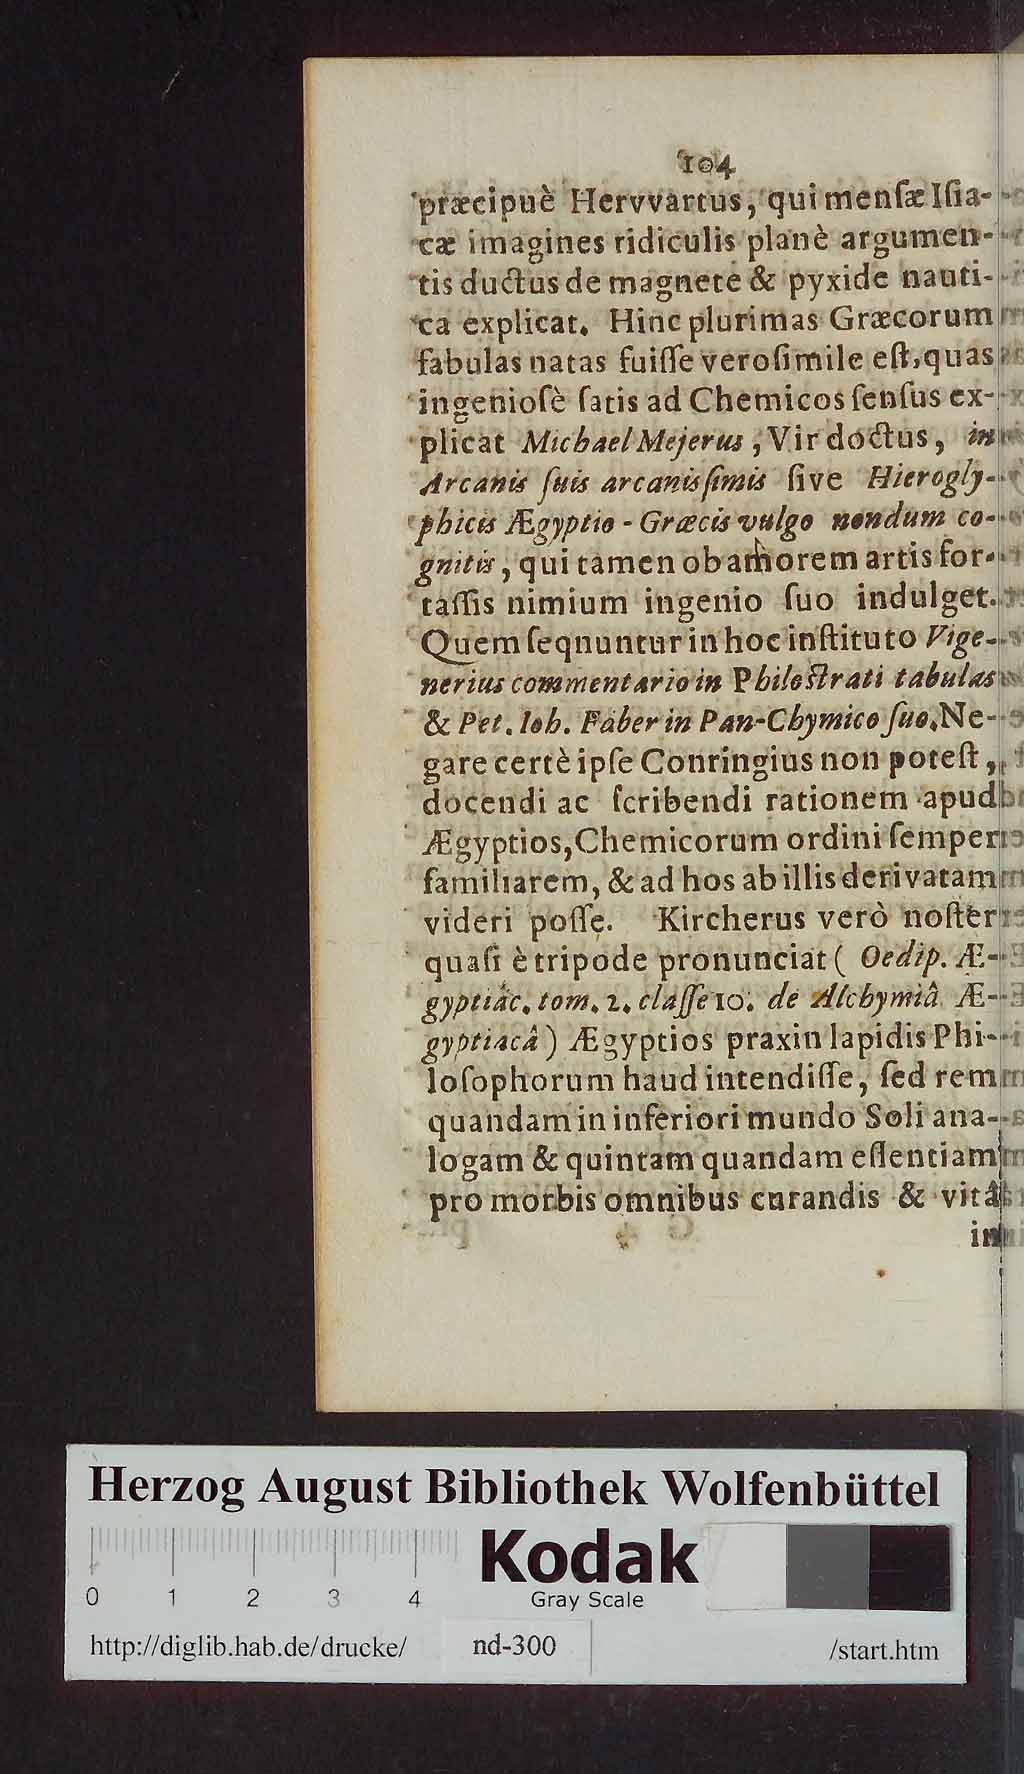 104
præcipuè Hervvartus, qui menſæ Iſia-
cæ imagines ridiculis planè argumen-
tis ductus de magnete & pyxide nauti-
ca explicat. Hinc plurimas Græcorum
fabulas natas fuiſſe veroſimile eſt, quas
ingenioſè ſatis ad Chemicos ſenſus ex-
plicat Michael Mejerus, Vir doctus, in
Arcanis ſuis arcanisſimis ſive Hierogly-
phicis Ægyptio-Græcis vulgo nondum co-
gnitis, qui tamen ob amorem artis for-
taſſis nimium ingenio ſuo indulget.
Quem ſeqnuntur in hoc inſtituto Vige-
nerius commentario in Philoſtrati tabulas
& Pet. Ioh. Faber in Pan-Chymico ſuo. Ne-
gare certè ipſe Conringius non poteſt,
docendi ac ſcribendi rationem apud
Ægyptios, Chemicorum ordini ſemper
familiarem, & ad hos ab illis derivatam
videri poſſe. Kircherus verò noſter
quaſi è tripode pronunciat ( Oedip. Æ-
gyptiac. tom. 2. claſſe 10. de Alchymiâ Æ-
gyptiacâ ) Ægyptios praxin lapidis Phi-
loſophorum haud intendiſſe, ſed rem
quandam in inferiori mundo Soli ana-
logam & quintam quandam eſſentiam
pro morbis omnibus curandis & vitâ
in
Herzog August Bibliothek Wolfenbüttel
Kodak
Gray Scale
0 1 2 3 4
http://diglib.hab.de/drucke/ nd-300 /start.htm